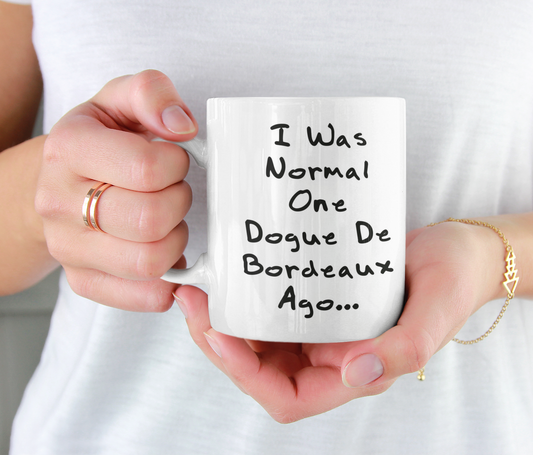 I Was
Normal
One
Dogue De
Bordeaux
Ago...